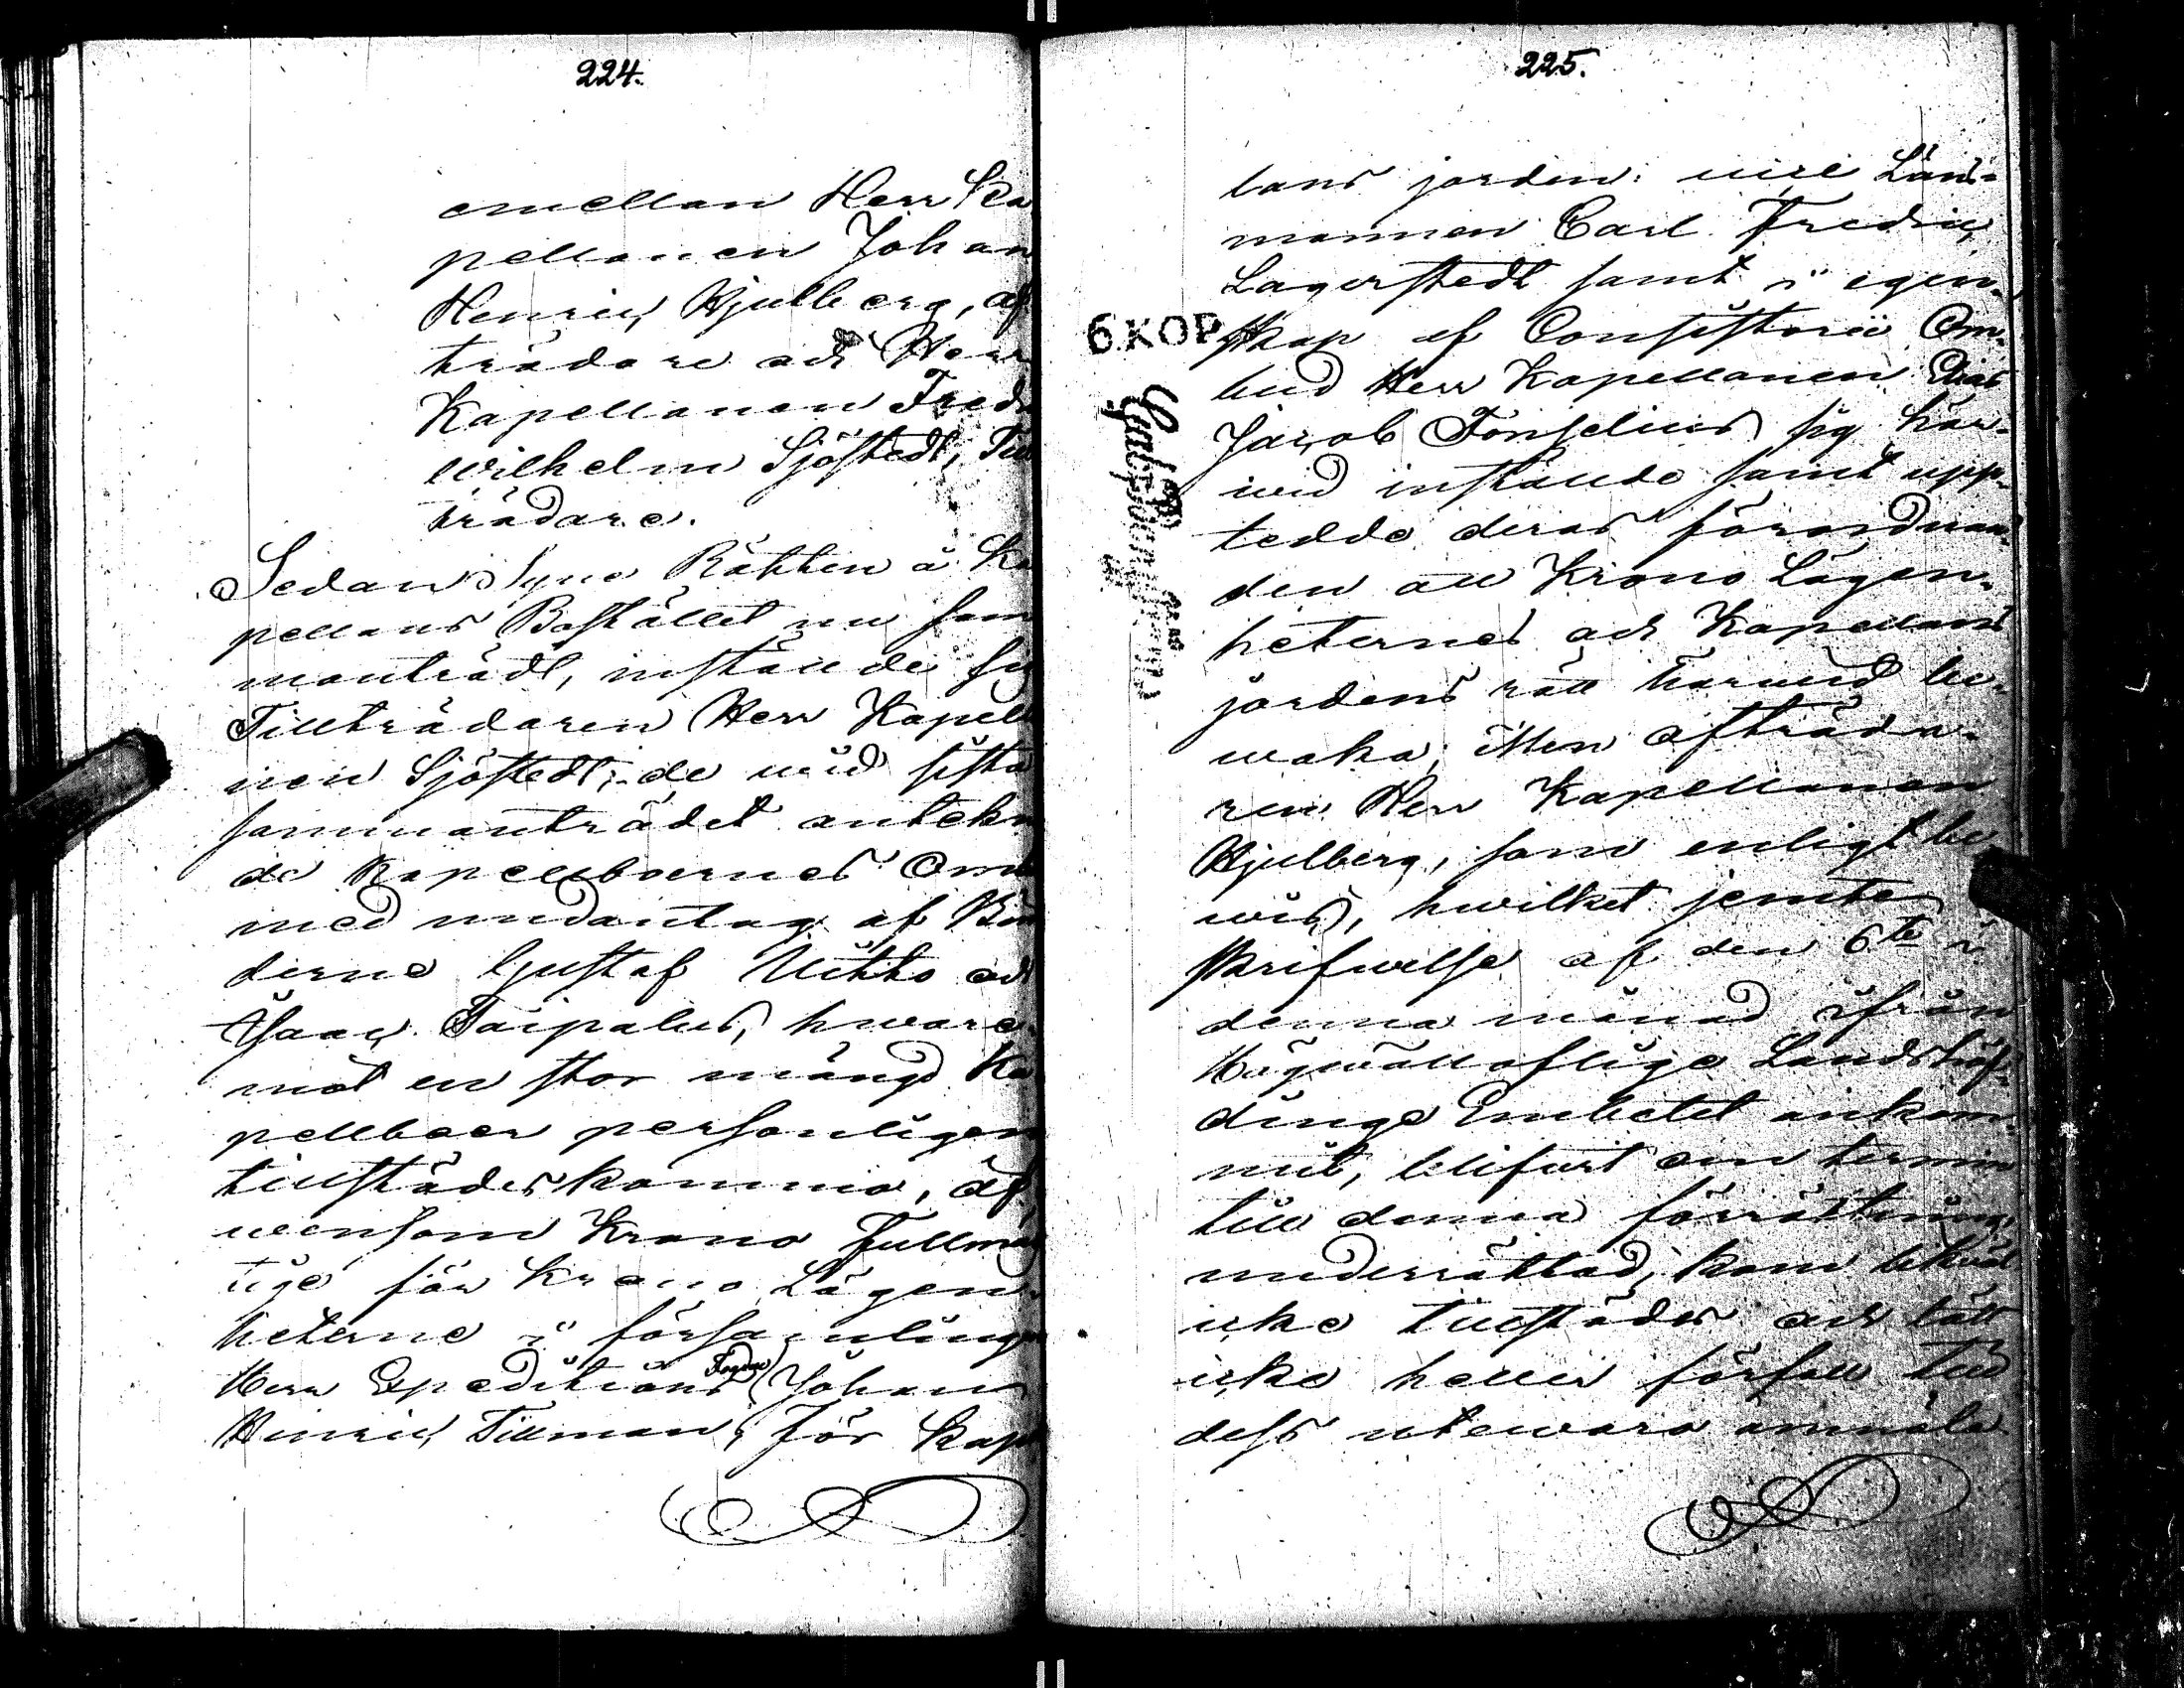 224.
emellan Herr Ka
pellanen Johan
Henric Hjulberg, af
trädare och Herr
Kapellanen Fredr
Wilhelm Sjöstedt, Till
trädare.
Sedan Syne Rätten å Ka
pellans Bostället nu sam
manträdt, instälde sig
Tillträdaren Herr Kapella
nen Sjöstedt, de wid sista
sammanträdet antekn
de Kapellboernes Omb
med undantag af Bön
derne Gustaf Uitto och
Isaac Taipalus, hware
mot en stor mängd Ka
pellboer personligen
tillstädeskommo, äf
wensom Krono Fullmäg
tige för Krono Lägen
heterne i församlingen
Herr Expeditions Fogden Johan
Henric Tillman, för Kapel
225.
lans jorden: vice Läns-
mannen Carl Fredric
Lagerstedt samt i egen-
skap af Consistorii Om-
bud Herr Kapellanen Elias
Jacob Fonselius sig här-
wid instälde samt upp-
tedde deras förordnan-
den att Krono Lägen-
heternes och Kapellans
jordens rätt härwid be-
waka; Men afträda-
ren Herr Kapellanen
Hjulberg, som enligt be-
wis, hwilket jemte
skrifwelse af den 6te i
denna månad ifrån
Högwällofliga Landshöf-
dinge Embetet ankom-
mit, blifwit om termin
till denna förrättning
underrättad, kom likwäl
icke tillstädes och lätt
icke heller förfall till
dess utewaro anmäla
6 KOP